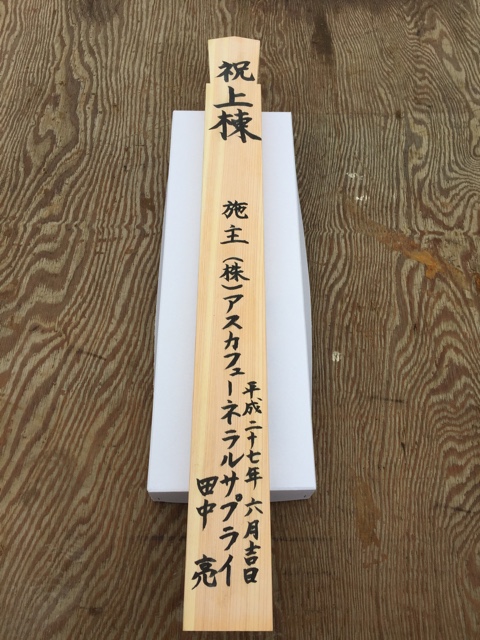 祝上棟
平成二十七年六月吉日
施主(株)アスカフューネラルサプライ
田中亮